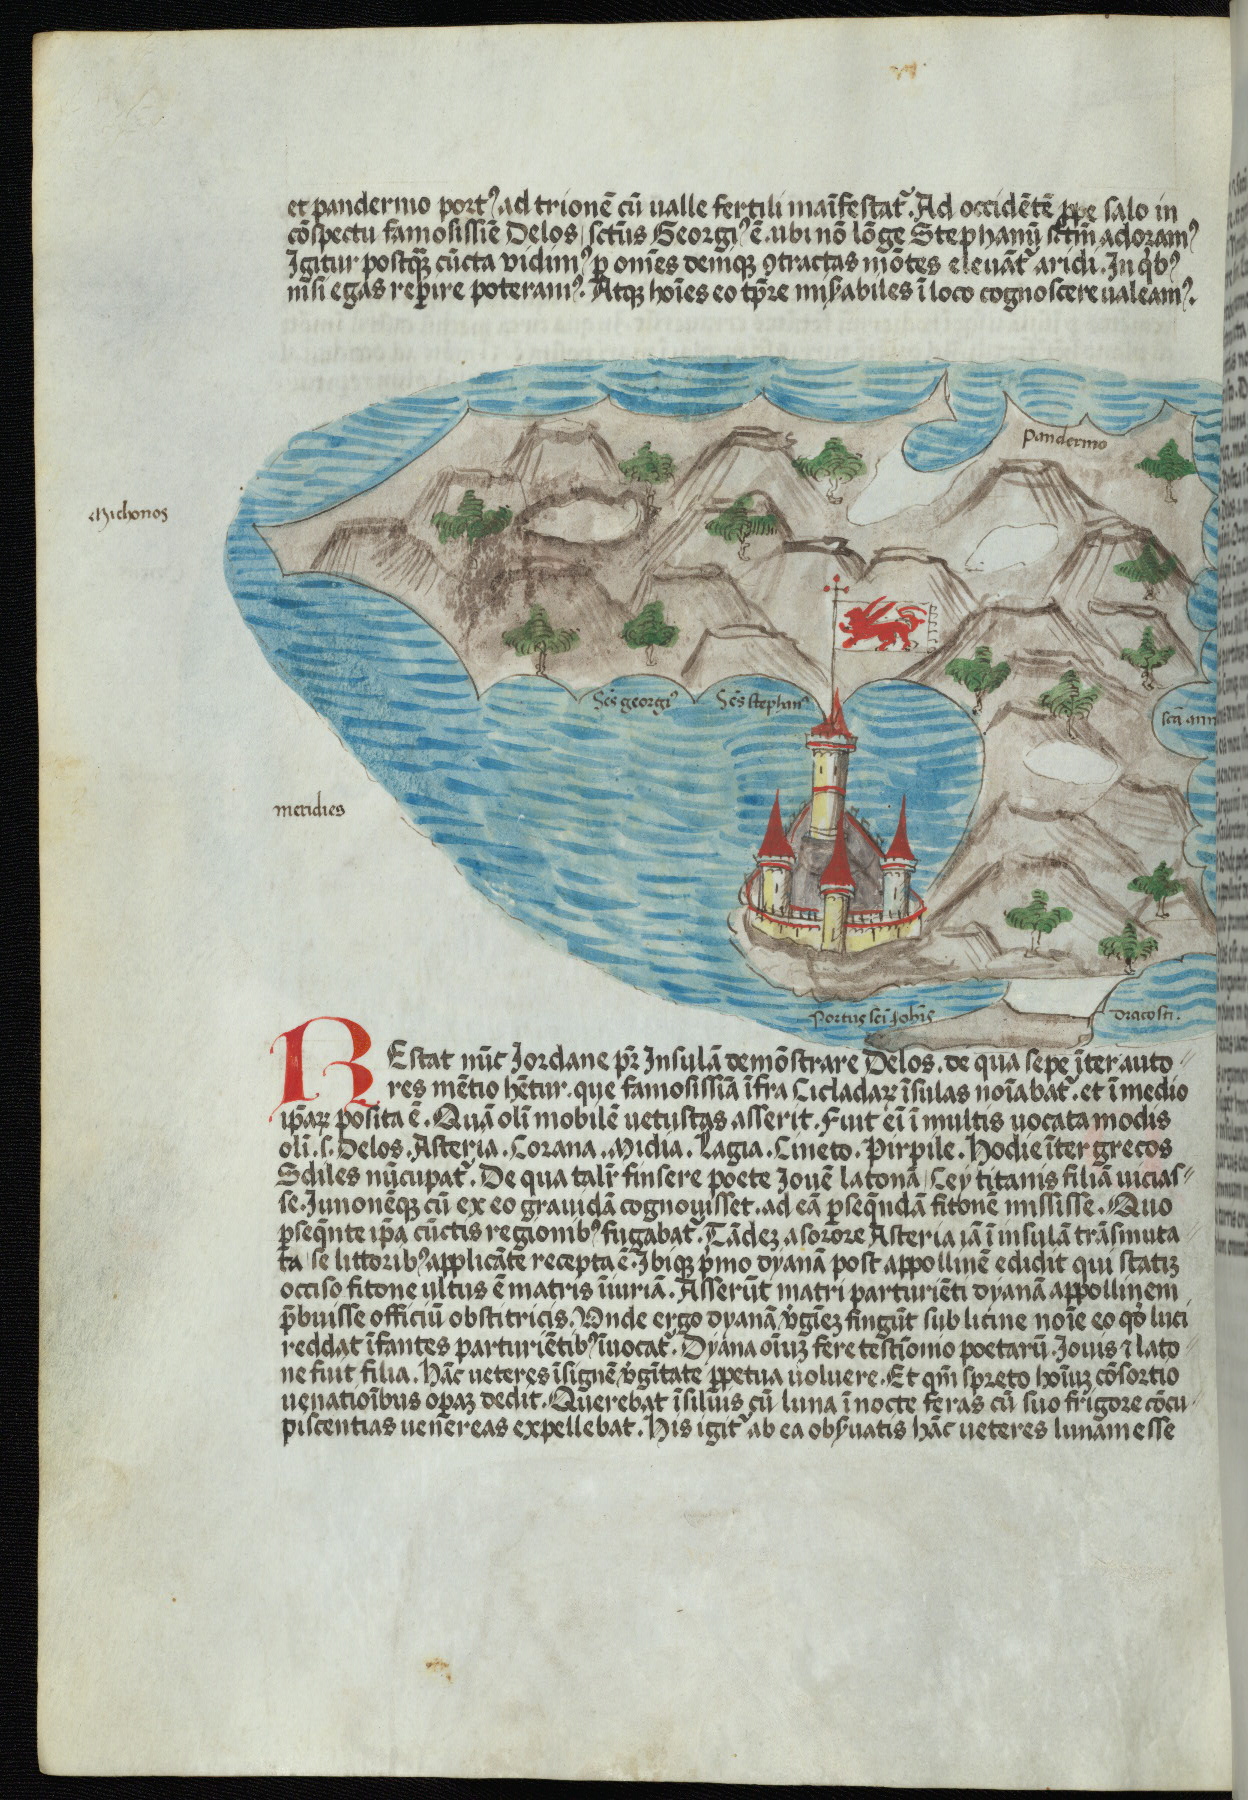 et pandermo portꝰ ad trionē cū valle fertili maīfestat᷑. Ad occidētē ꝓpe salo in
cōspectu famosissiē Delos sctūs Georgiꝰ ē. ubi nō lōge Stephanū sctm̄ adoramꝰ
Igitur postꝗ̄ cūcta vidimꝰ ꝑ om̄es deniqꝫ ꝯtractas mōtes elevāt᷑ aridi. In qͥbꝰ
nisi egas reꝑire poteramꝰ. Atqꝫ hoīes eo tp̄re mis̄abiles ī loco cognoscere valeamꝰ.
pandermo
Michonos
Sc̄s georgiꝰ
Sc̄s stephanꝰ
sctā ann
meridies
Portus scī Johīs
Dracosti.
REstat nūc Jordane pr̄ Insulā demōstrare Delos. de qua sepe īter auto
res mētio hētur. que famosissiā īfra Cicladaꝝ īsulas noīabat᷑. et ī medio
ip̄aꝝ posita ē. Quā olī mobilē vetustas asserit. Fuit eī ī multis vocata modis
olī .s. Delos. Asteria. Corana. Midia. Lagia. Cineto. Pirpile. Hodie īter grecos
Sdiles nūcupat᷑. De qua talr̄ finsere poete Jovē latonā Cey titanis filiā vicias
se. Junonēqꝫ cū ex eo gravidā cognovisset. ad eā ꝑseq̄ndā fitonē misisse. Quo
ꝑseq̄nte ip̄a cūctis regionibꝰ fugabat᷑. Tādeꝫ a sorore Asteria iā ī insulā trāsmuta
ta se littoribꝰ applicātē recepta ē. Ibiqꝫ pͥmo dyanā post appollinē edidit qui statiꝫ
occiso fitone ultus ē matris īiuriā. Asserūt matri parturiēti dyanā appollinem
p̄buisse officiū obstitricis. Unde ergo dyanā v̓gīeꝫ fingūt sub licine noīe eo qͦd luci
reddat īfantes parturiētibꝰ īvocat᷑. Dyana oīuꝫ fere testīonio poetarū. Jovis ⁊ lato
ne fuit filia. Hāc veteres īsignē v̓gītate ꝑpetua voluere. Et qm̄ spreto hoīuꝫ cōsortio
venatioībus oꝑaꝫ dedit. Querebat ī silvis cū luna ī nocte feras cū suo frigore cōcu
piscentias venereas expellebat. His igit᷑ ab ea obs̄vatis hāc veteres lunam esse